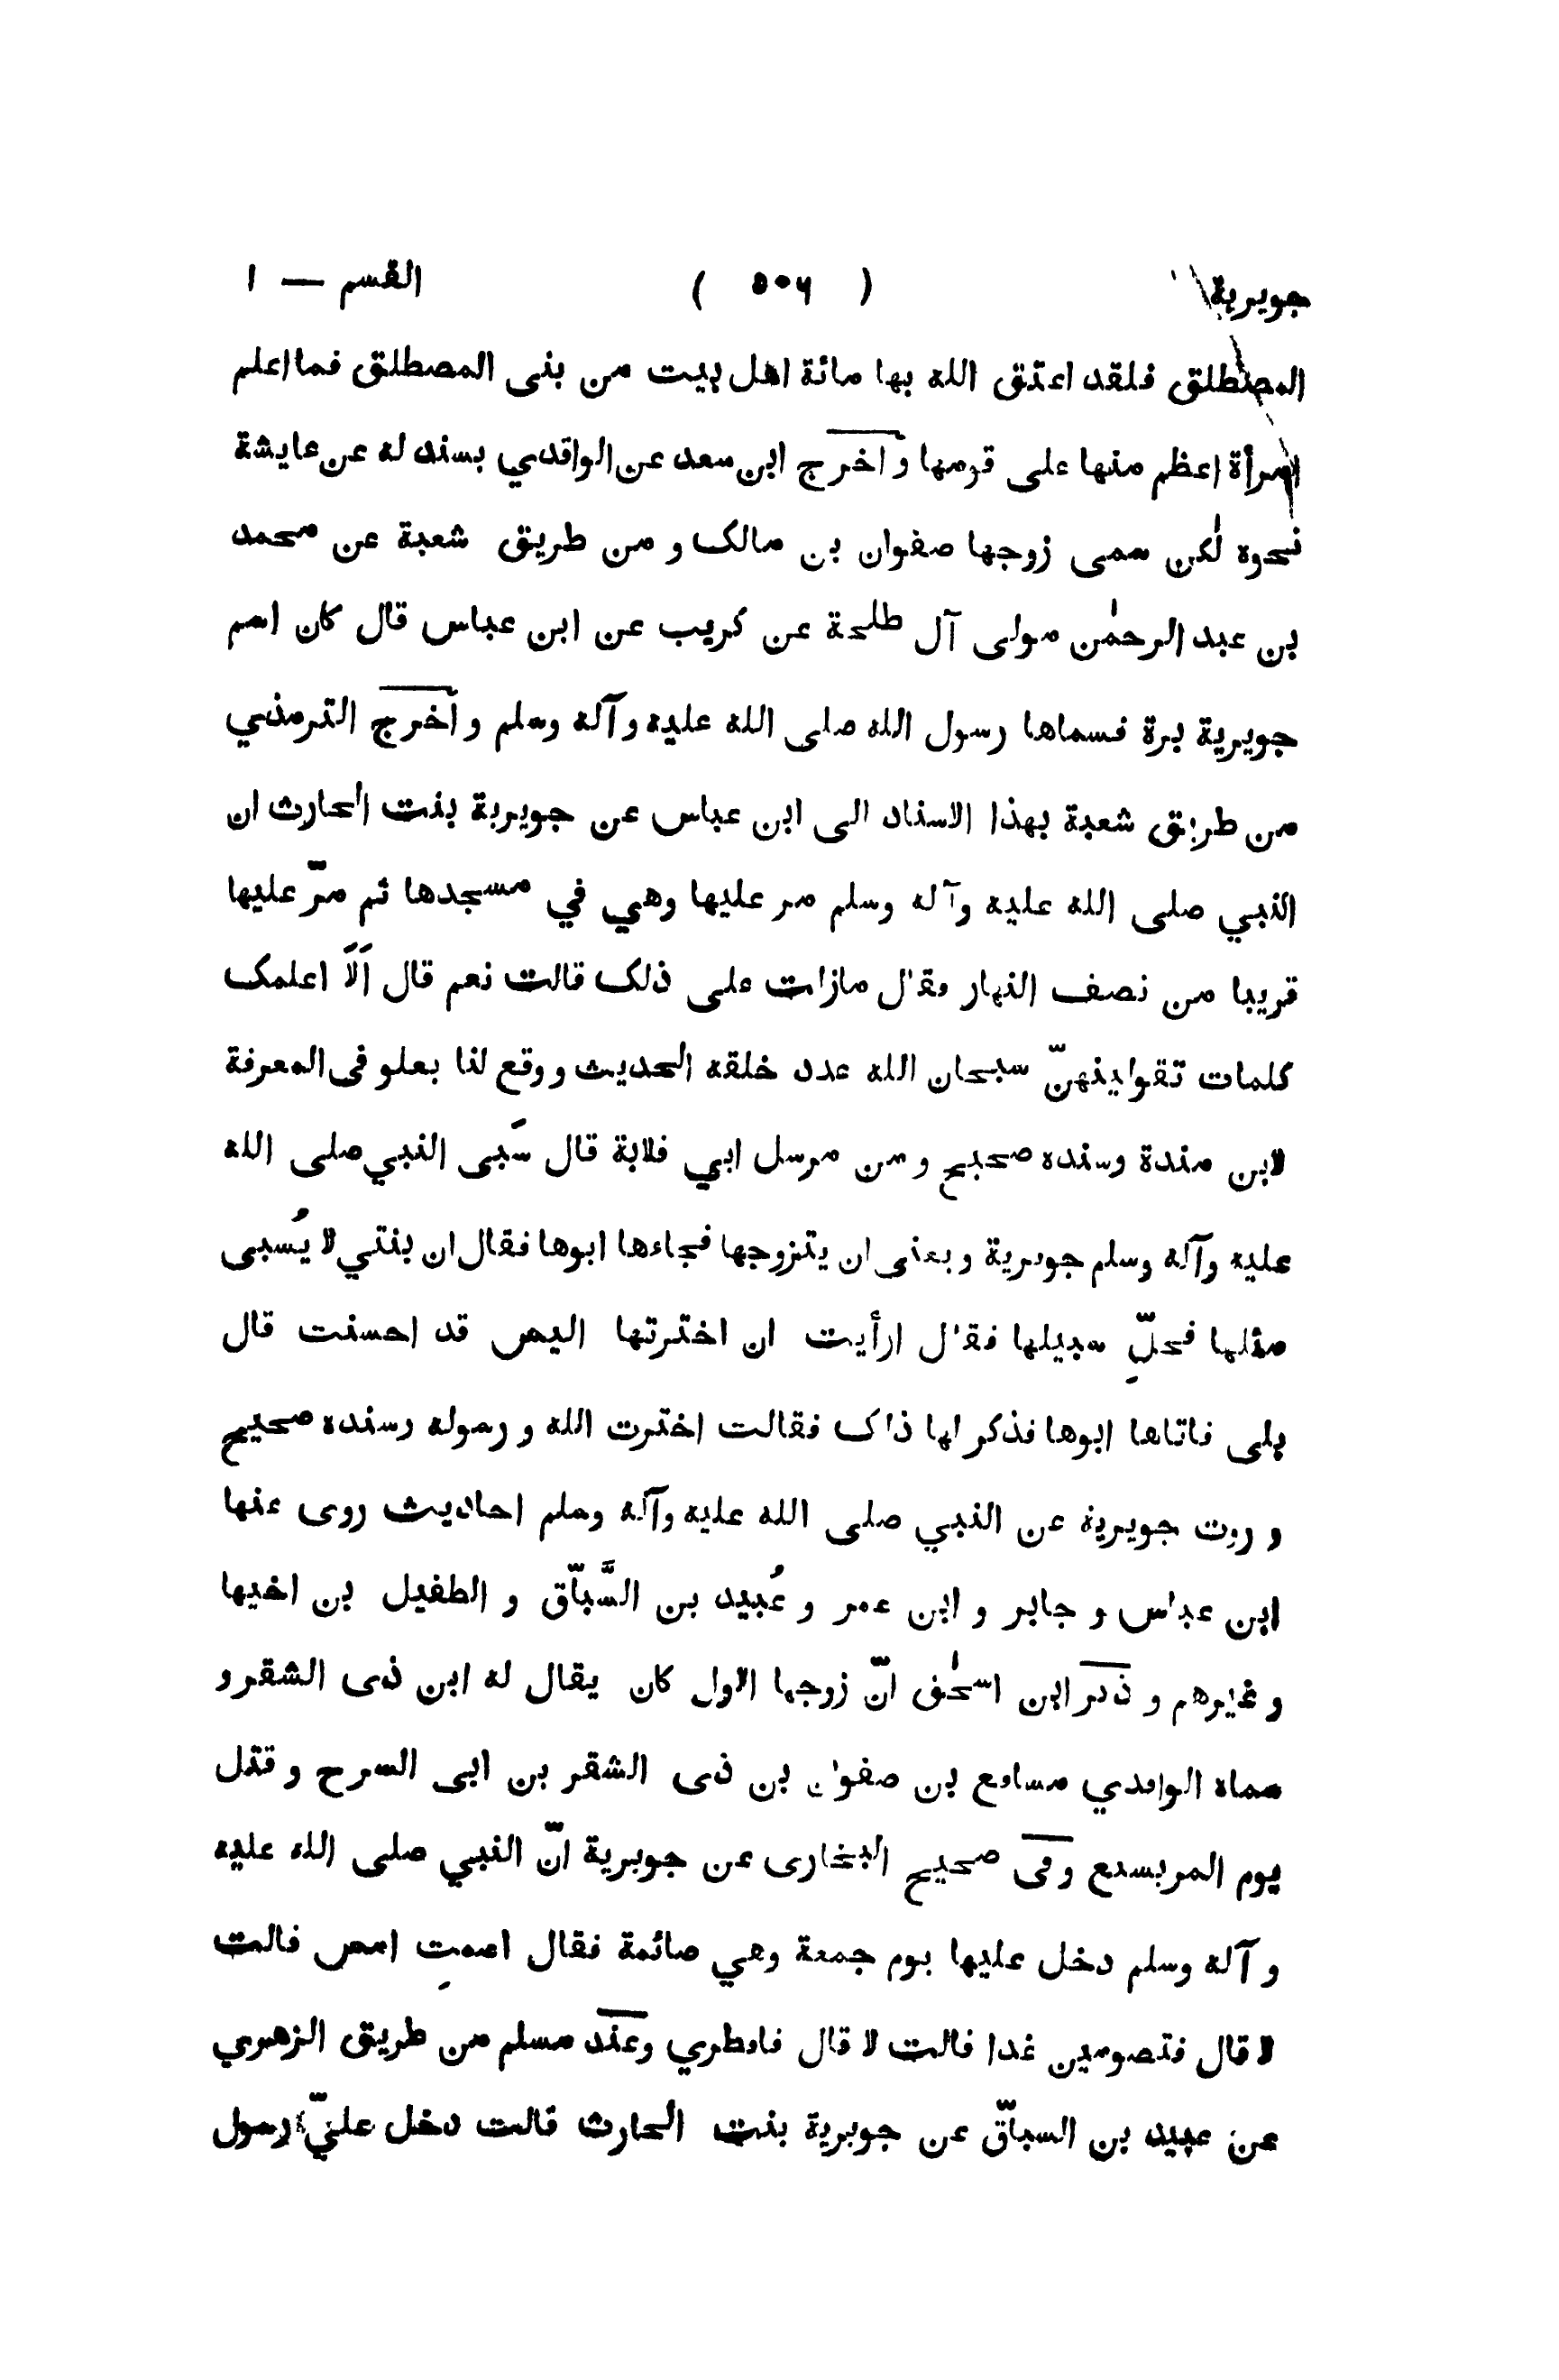 جويرية ( ٥٠٦ ) القسم — ١
المصطلق فلقد اعتق الله بها مائة اهل بيت من بنى المصطلق فما اعلم
امرأة اعظم منها على قومها و اخرج ابن سعد عن الواقدي بسند له عن عايشة
نحوه لٰكن سمى زوجها صفوان بن مالك و من طريق شعبة عن محمد
بن عبد الرحمٰن مولى آل طلحة عن كريب عن ابن عباس قال كان اسم
جويرية برة فسماها رسول الله صلى الله عليه و آله وسلم و اخرج الترمذي
من طريق شعبة بهذا الاسناد الى ابن عباس عن جويرية بنت الحارث ان
النبي صلى الله عليه وآله وسلم مر عليها وهي في مسجدها ثم مرّ عليها
قريبا من نصف النهار فقال مازلت على ذلك قالت نعم قال اَلَا اعلمك
كلمات تقولينهنّ سبحان الله عدد خلقه الحديث و وقع لنا بعلو فى المعرفة
لابن مندة وسنده صحيح و من مرسل ابي قلابة قال سَبى النبي صلى الله
عليه وآله وسلم جويرية و يعنى ان يتزوجها فجاءها ابوها فقال ان بنتي لا يُسبى
مثلها فخلِّ سبيلها فقال ارأيت ان اخترتها اليس قد احسنت قال
بلى فاتاها ابوها فذكر لها ذلك فقالت اخترت الله و رسوله وسنده صحيح
و روت جويرية عن النبي صلى الله عليه وآله وسلم احاديث روى عنها
ابن عباس و جابر و ابن عمر و عُبيد بن السَّبّاق و الطفيل بن اخيها
و غيرهم و ذكر ابن اسحٰق انّ زوجها الاول كان يقال له ابن ذى الشقر و
سماه الواقدي مسافع بن صفوان بن ذى الشقر بن ابى السرح و قتل
يوم المريسيع وفى صحيح البخارى عن جويرية انّ النبي صلى الله عليه
و آله وسلم دخل عليها يوم جمعة وهي صائمة فقال اصمتِ امس قالت
لا قال فتصومين غدا قالت لا قال فافطري وعند مسلم من طريق الزهري
عن عبيد بن السباّق عن جويرية بنت الحارث قالت دخل عليّ رسول